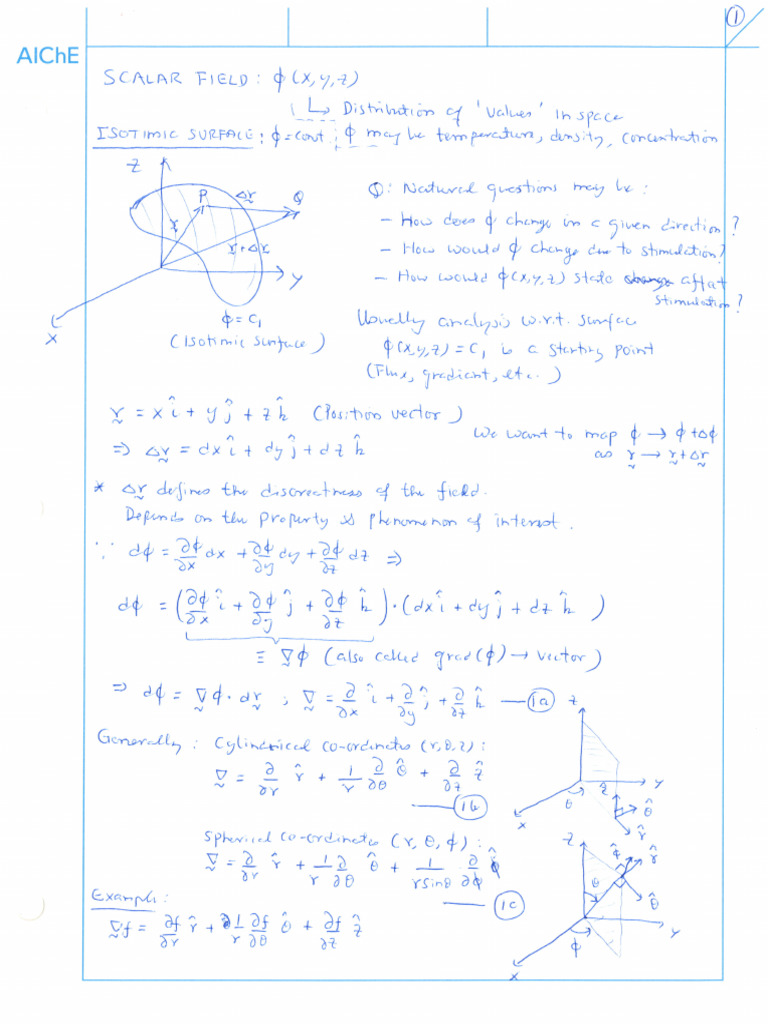 ①
AIChE
SCALAR FIELD: ϕ(x,y,z)
↳ Distribution of 'values' in space
ISOTIMIC SURFACE: ϕ=cont; ϕ may be temperature, density, concentration
Z
P
Δr̰
Q
r̰
r̰+Δr̰
y
x
ϕ = C₁
(Isotimic surface)
Q: Natural questions may be:
- How does ϕ change in a given direction?
- How would ϕ change due to stimulation?
- How would ϕ(x,y,z) state affect
stimulation?
Usually analysis w.r.t. surface
ϕ(x,y,z) = C₁ is a starting point
(Flux, gradient, etc..)
r̰ = x î + y ĵ + z k̂ (Position vector)
⇒ Δr̰ = dx î + dy ĵ + dz k̂
We want to map ϕ → ϕ+Δϕ
as r̰ → r̰+Δr̰
* Δr̰ defines the discreetness of the field.
Depends on the property & phenomenon of interest.
∵ dϕ = ∂ϕ/∂x dx + ∂ϕ/∂y dy + ∂ϕ/∂z dz ⇒
dϕ = (∂ϕ/∂x î + ∂ϕ/∂y ĵ + ∂ϕ/∂z k̂)·(dx î + dy ĵ + dz k̂)
≡ ∇̰ϕ (also called grad(ϕ) → vector)
⇒ dϕ = ∇̰ϕ·dr̰ ; ∇̰ = ∂/∂x î + ∂/∂y ĵ + ∂/∂z k̂ —(1a)
Generally: Cylinerical co-ordinates (r,θ,z):
∇̰ = ∂/∂r r̂ + 1/r ∂/∂θ θ̂ + ∂/∂z ẑ
—(1b)
z
y
x
θ
ẑ
θ̂
r̂
Spherical co-ordinates (r, θ, ϕ):
∇̰ = ∂/∂r r̂ + 1/r ∂/∂θ θ̂ + 1/(r sinθ) ∂/∂ϕ ϕ̂
—(1c)
z
ϕ̂
r̂
θ
θ̂
y
ϕ
x
Example:
∇̰f = ∂f/∂r r̂ + 1/r ∂f/∂θ θ̂ + ∂f/∂z ẑ